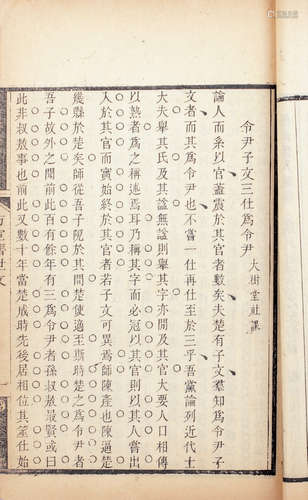 令尹子文三仕爲令尹
大樹堂社課
論人而系以官蓋震於其官者數矣夫楚有子文羣知爲令尹子
文者而其爲令尹也不嘗一仕再仕至於三乎吾黨論列近代士
大夫舉其氏及其諡無諡則舉其字亦間及其官大要人口相傳
以熟者爲之稱述焉耳乃稱其字而必冠以其官則以其人嘗出
入於其官而實始終於其官者若子文可異焉師陳產也陳逼楚
幾縣於楚矣師從吾子阨於其間楚使適至斯時楚之爲令尹者
吾子故外之間前此百有餘年有三爲令尹者孫叔敖最賢或曰
此非叔敖事也前此又數十年當楚成時先後居相位其筮仕始